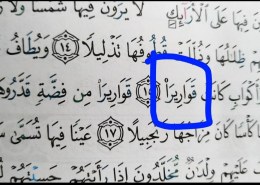 فِيهَا عَلَى ٱلْأَرَآئِكِ لَا يَرَوْنَ فِيهَا شَمْسًا وَلَا
ظِلَٰلُهَا وَذُلِّلَتْ قُطُوفُهَا تَذْلِيلًا ١٤ وَيُطَافُ
وَأَكْوَابٍ كَانَتْ قَوَارِيرَا۠ ١٥ قَوَارِيرَا۟ مِن فِضَّةٍ قَدَّرُوهَا
كَأْسًا كَانَ مِزَاجُهَا زَنجَبِيلًا ١٧ عَيْنًا فِيهَا تُسَمَّىٰ
عَلَيْهِمْ وِلْدَٰنٌ مُّخَلَّدُونَ إِذَا رَأَيْتَهُمْ حَسِبْتَهُمْ